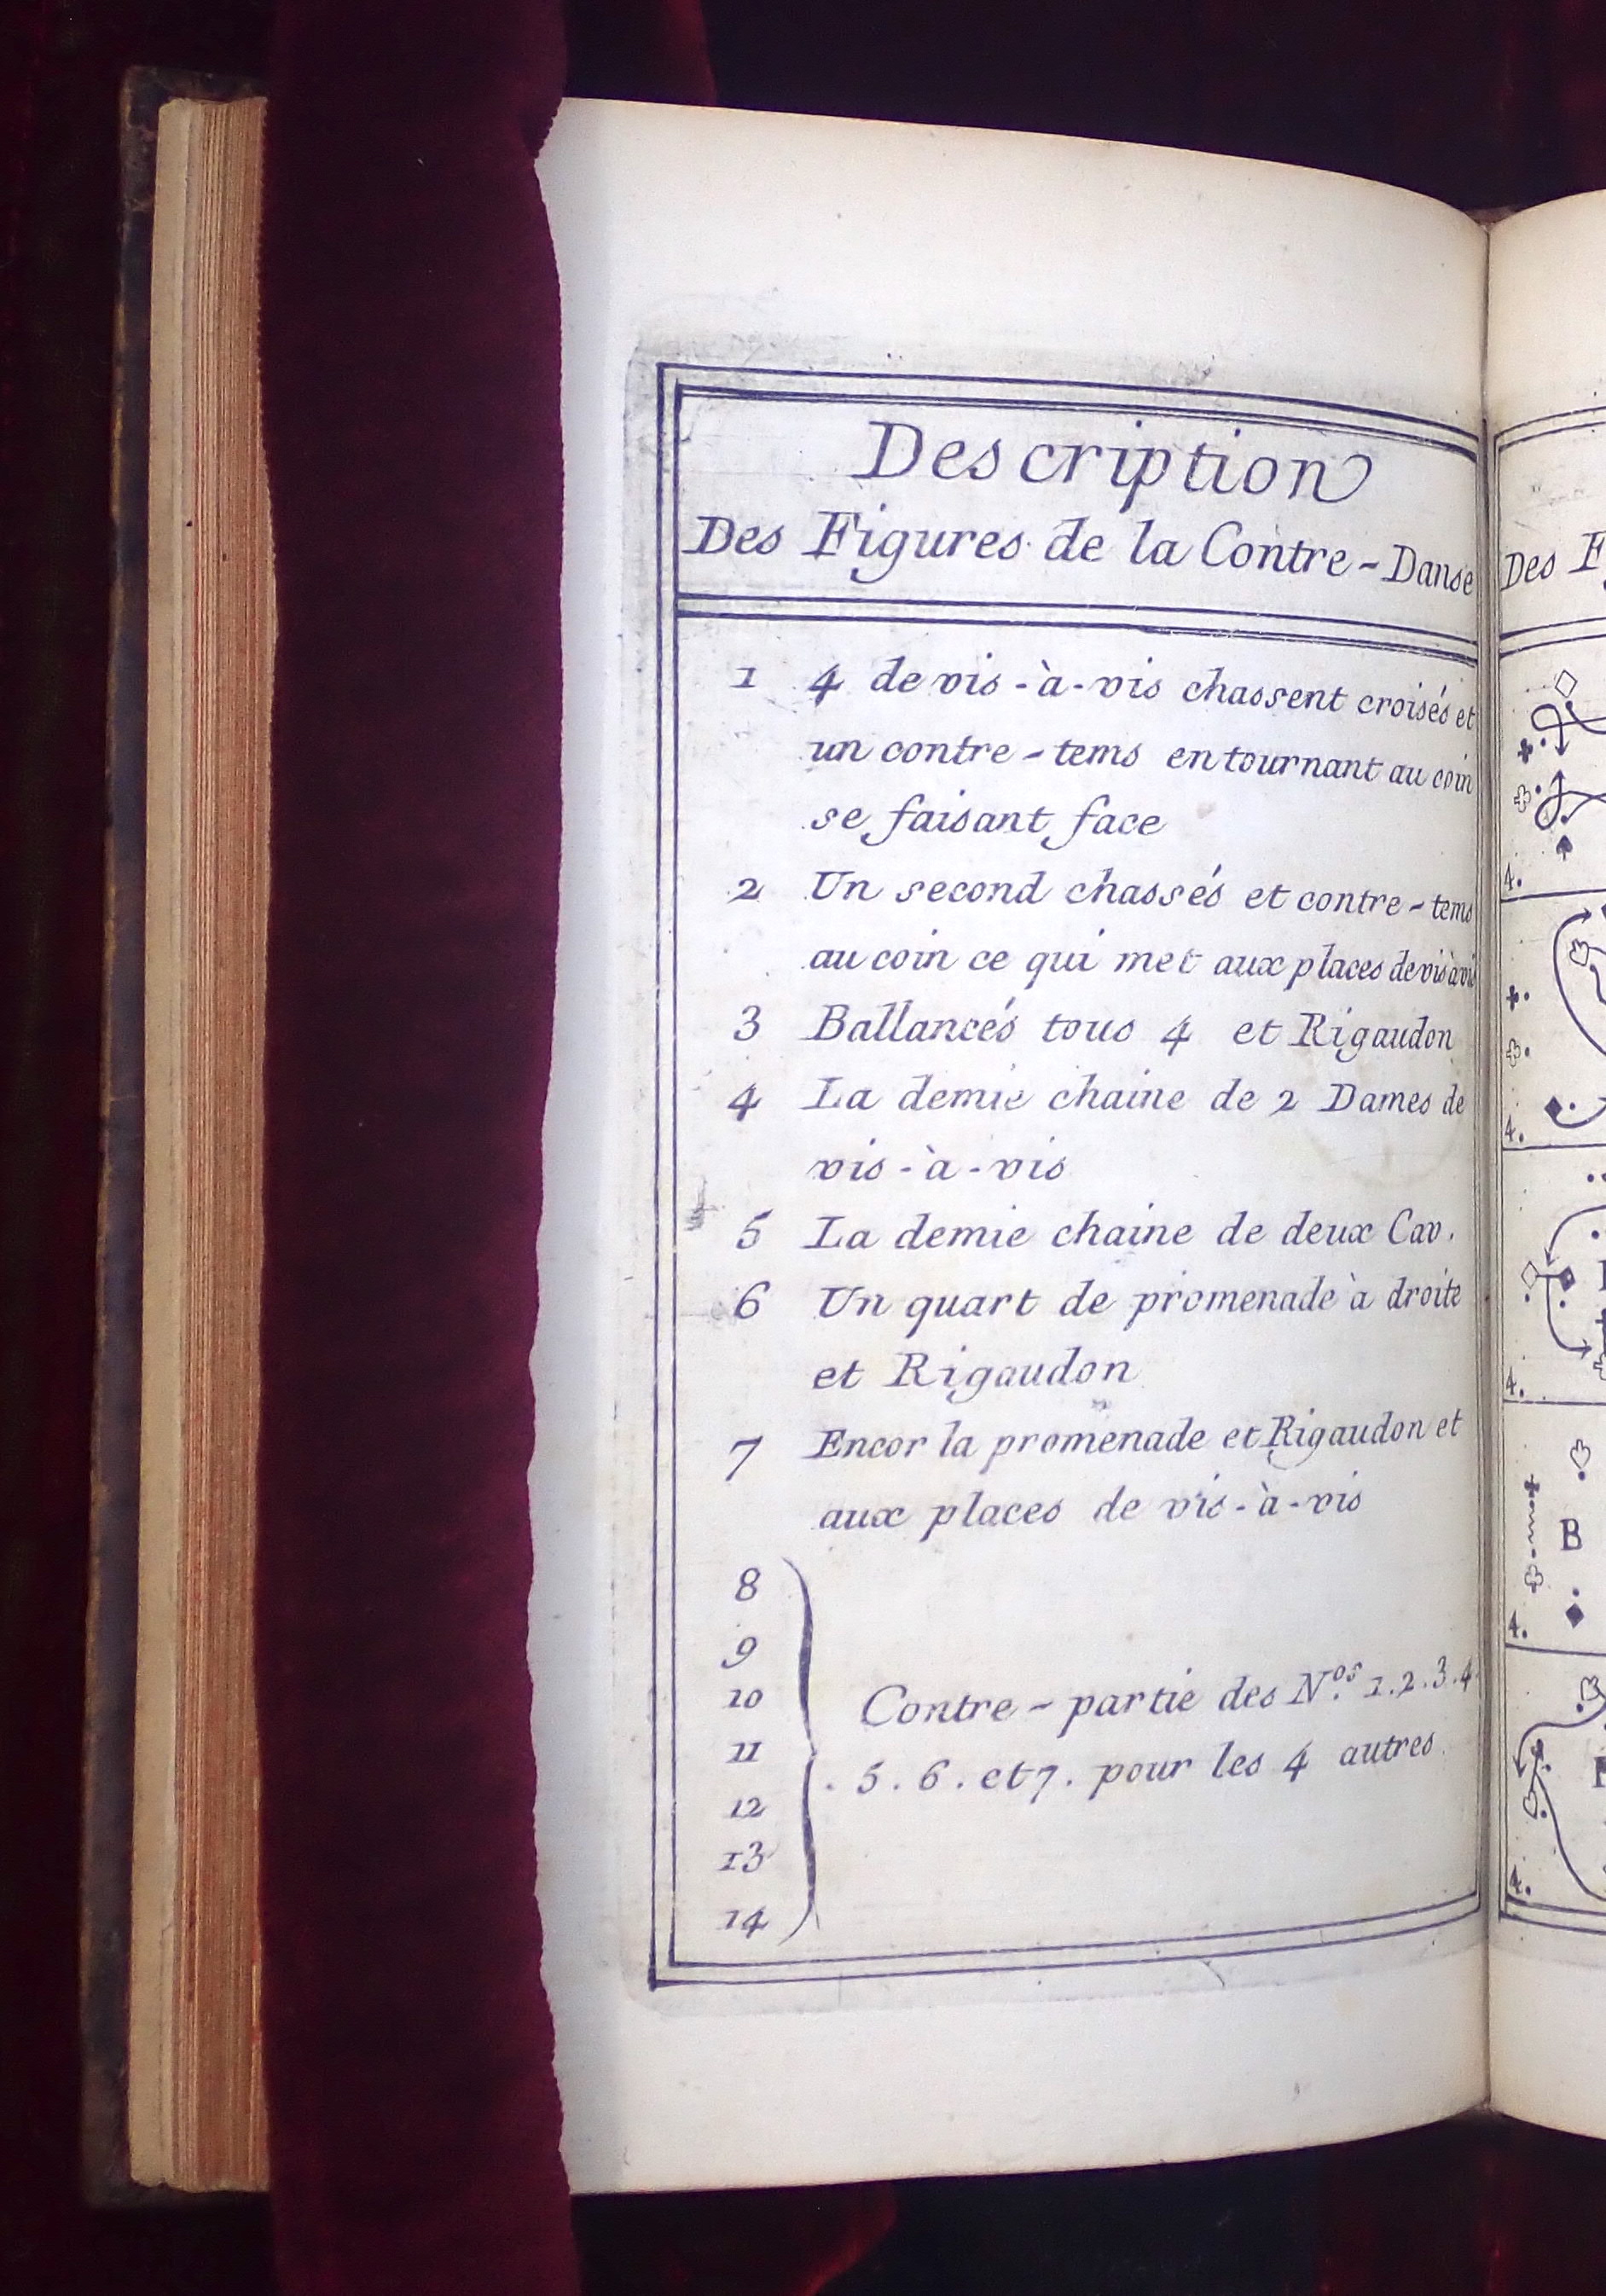 Description
Des Figures de la Contre-Danse
1 4 de vis-à-vis chassent croisés et
un contre-tems en tournant au coin
se faisant face
2 Un second chassés et contre-tems
au coin ce qui met aux places de vis à vis
3 Ballancés tous 4 et Rigaudon
4 La demie chaine de 2 Dames de
vis-à-vis
5 La demie chaine de deux Cav.
6 Un quart de promenade à droite
et Rigaudon
7 Encor la promenade et Rigaudon et
aux places de vis-à-vis
8
9
10
11
12
13
14
Contre-partie des N.os 1.2.3.4.
5.6. et 7. pour les 4 autres.
Des
4.
4.
4.
B
4.
4.